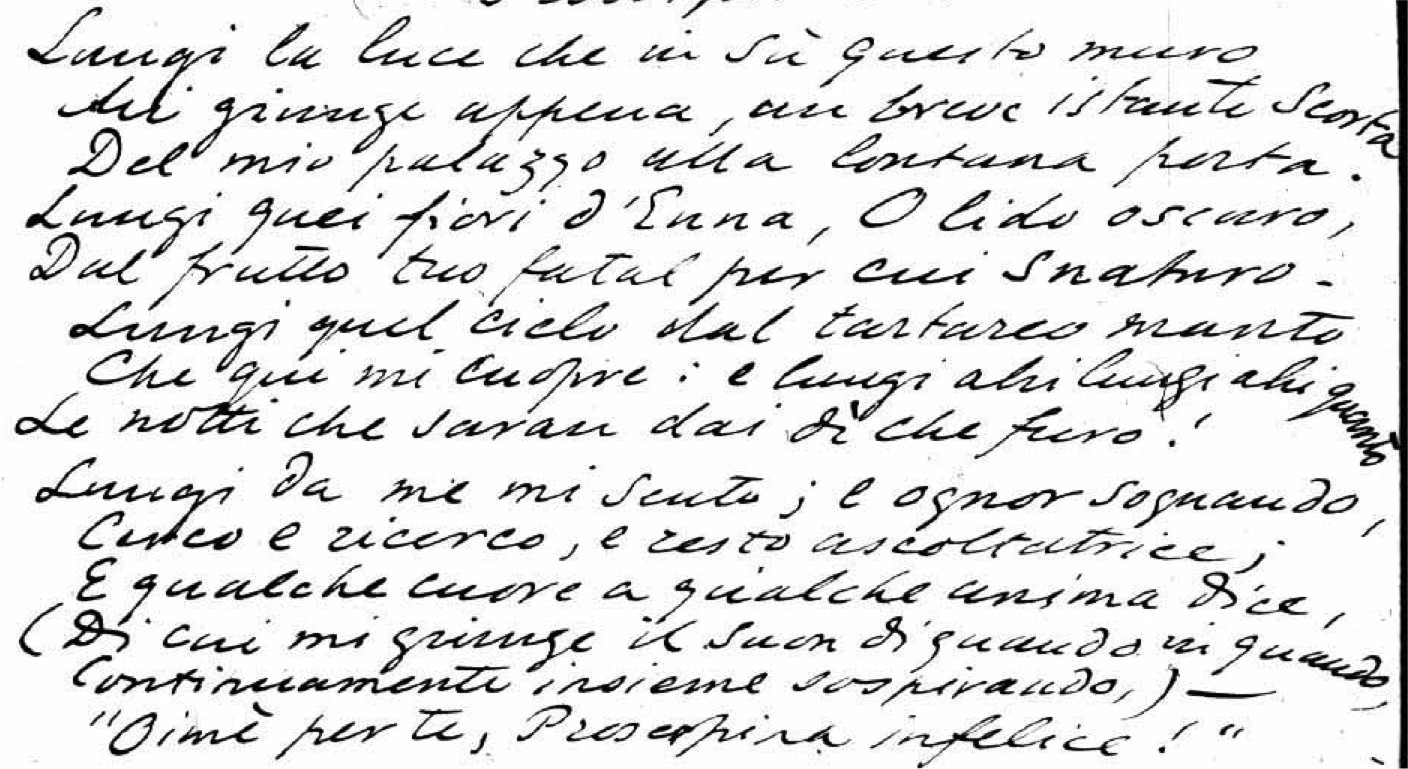 Lungi la luce che in sù questo muro
Mi giunge appena, un breve istante scorta
Del mio palazzo alla lontana porta.
Lungi quei fiori d'Enna, O lido oscuro,
Dal frutto tuo fatal per cui snaturo.
Lungi quel cielo dal tartareo manto
Che qui mi cuopre: e lungi ahi lungi ahi quanto
Le notti che saran dai dì che furo!
Lungi da me mi sento; e ognor sognando,
Cerco e ricerco, e resto ascoltatrice;
E qualche cuore a qualche anima dice,
(Di cui mi giunge il suon di quando in quando,
Continuamente insieme sospirando,) —
"Oimè per te, Proserpina infelice!"